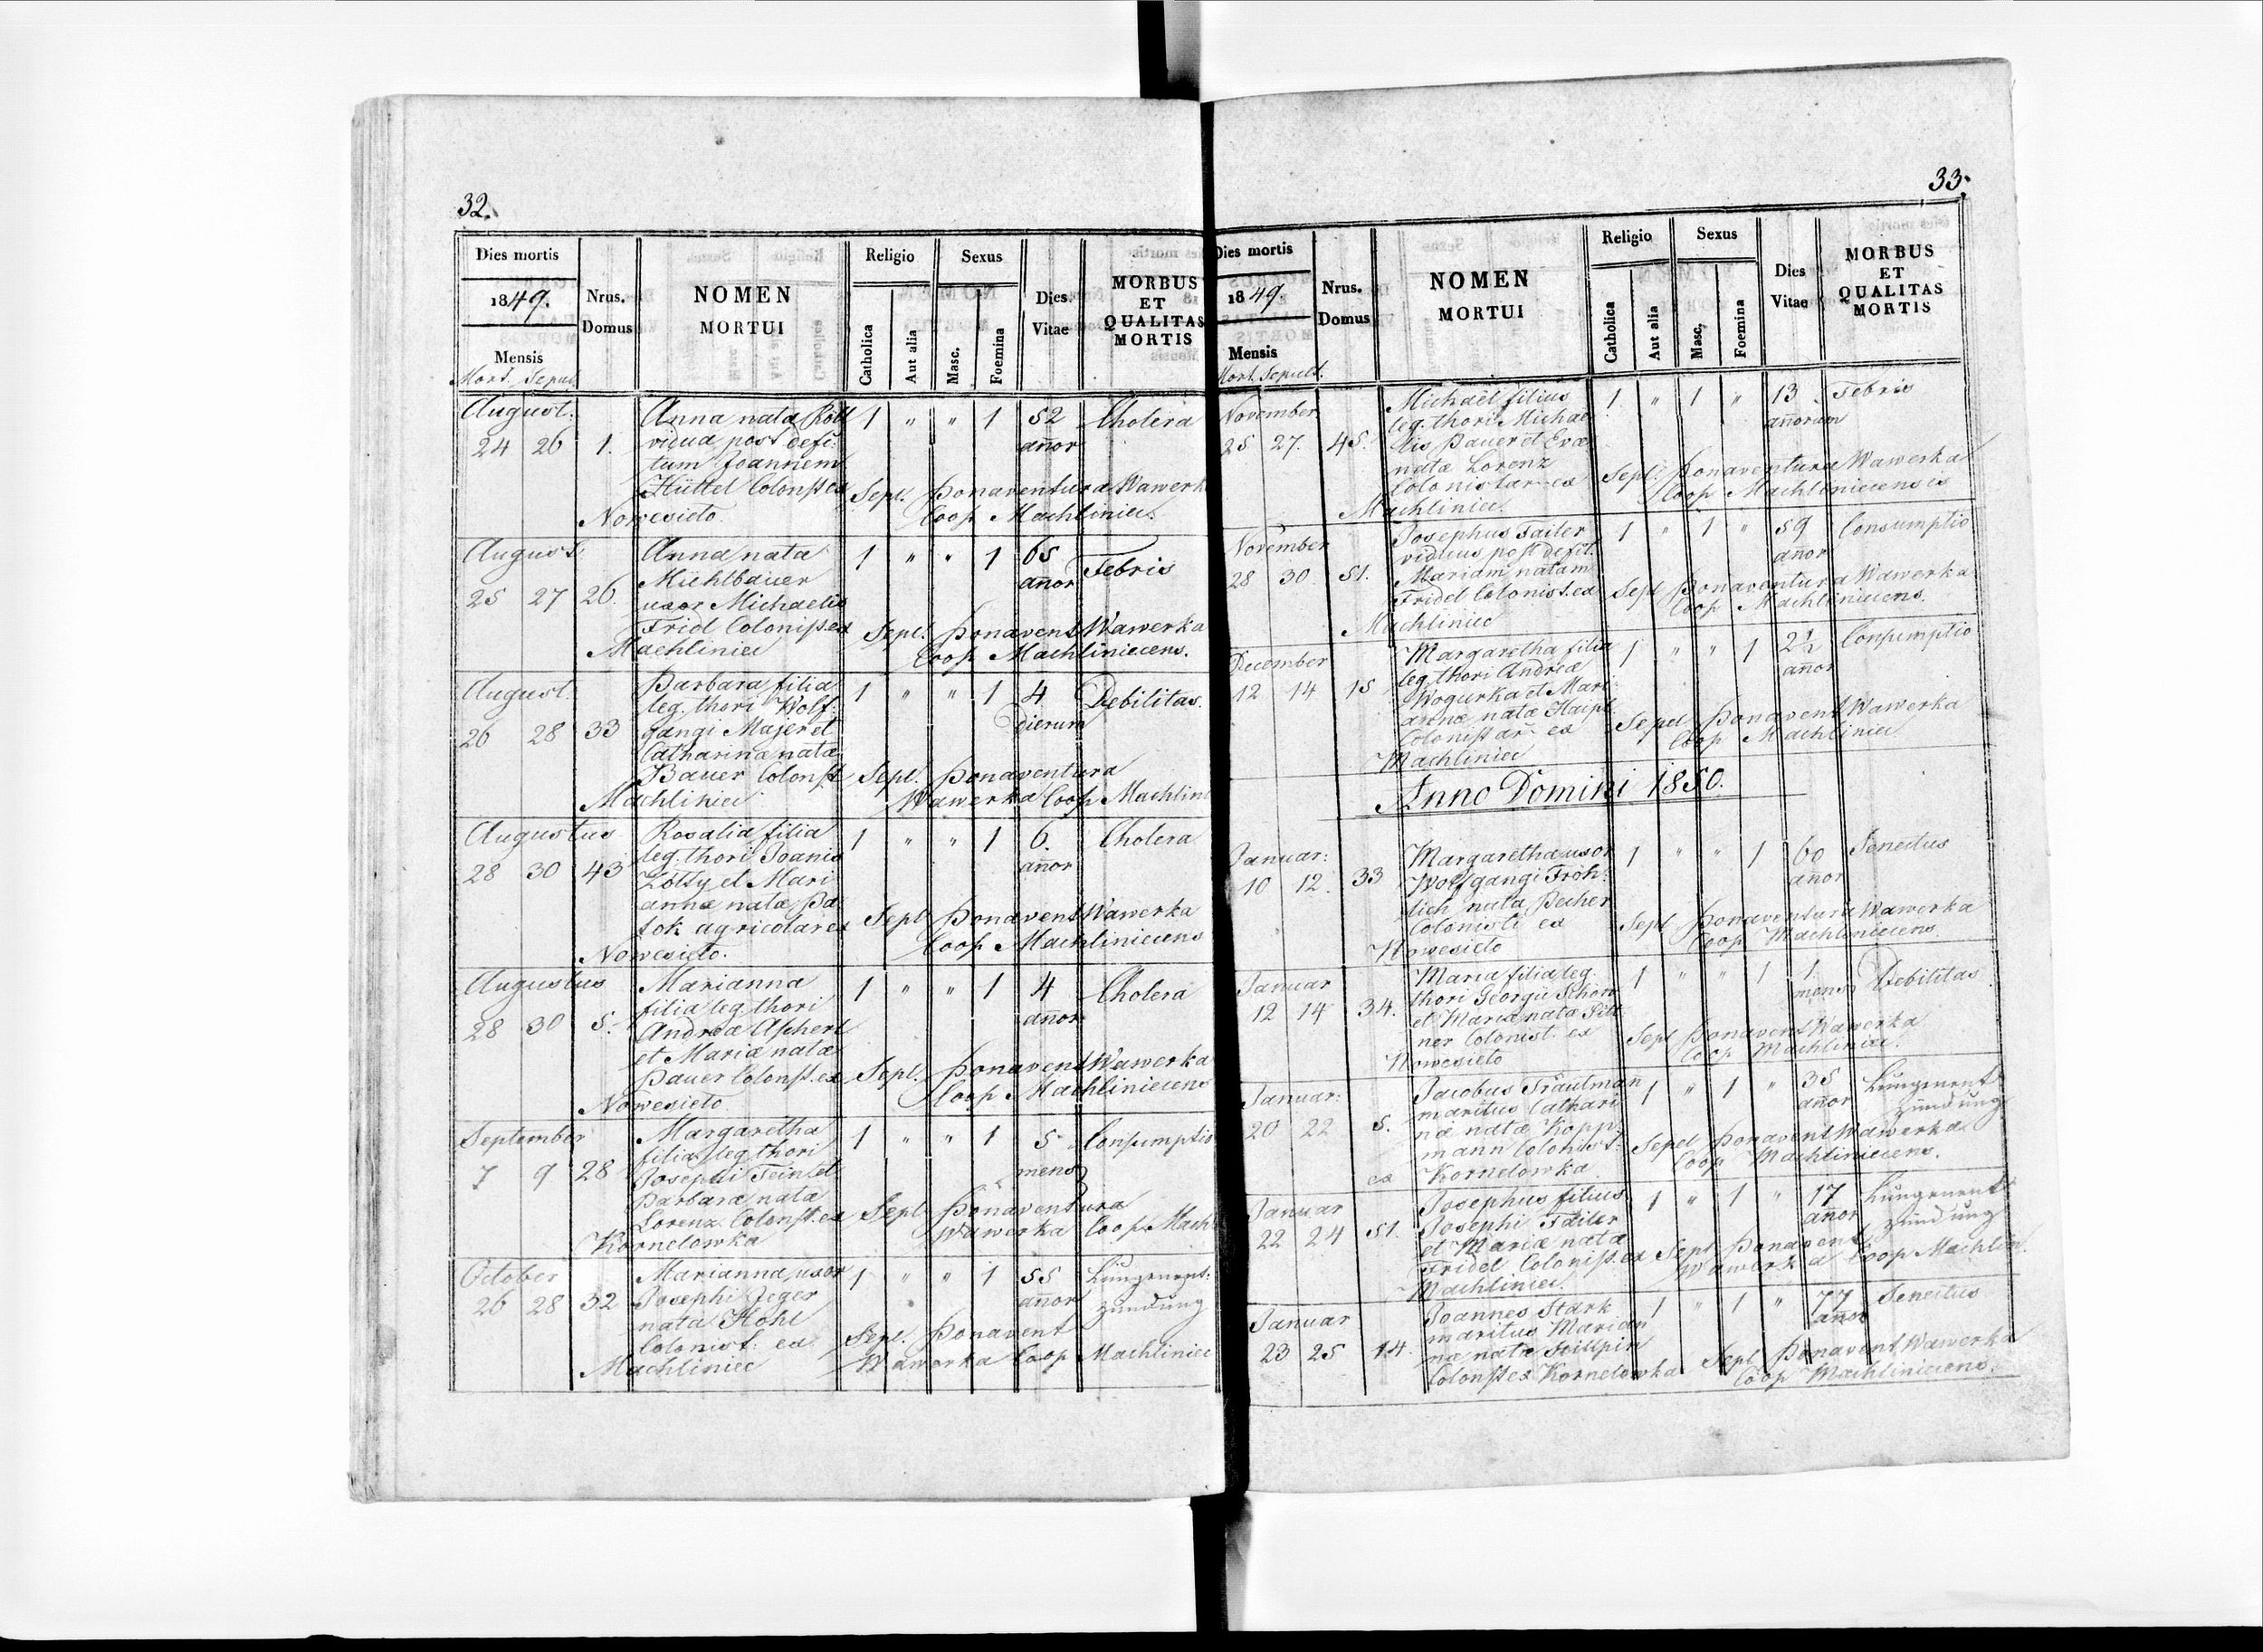 32.
Dies mortis
1849.
Mensis
Mort. Sepul.
Nrus.
Domus
NOMEN
MORTUI
Religio
Catholica
Aut alia
Sexus
Masc.
Foemina
Dies
Vitae
MORBUS
ET
QUALITAS
MORTIS
August.
24 26 1.
Anna nata
vidua post defū-
tum Joannem
Hüttel Colonist ex
Nowesioło.
1 " " 1 52
añor
Cholera
Sepl. Bonaventura Wawerk
Coop Machliniec.
August.
25 27 26.
Anna nata
Mühlbauer
uxor Michaelis
Fridl Colonist. ex
Machliniec
1 " " 1 65
añor
Febris
Sepl. Bonavent Wawerka
Coop Machliniecens.
August.
26 28 33
Barbara filia
leg. thori Wolf-
gangi Majer et
Catharina nata
Bauer Colonist
Machliniec
1 " " 1 4
Dierum
Debilitas.
Sepl. Bonaventura
Wawerka Coop Machlin
Augustus
28 30 43
Rosalia filia
leg. thori Joanis
et Mari
annæ natæ
agricolar ex
Nowesioło.
1 " " 1 6.
añor
Cholera
Sepl Bonavent Wawerka
Coop Machliniecens
Augustus
28 30 5.
Marianna
filia leg thori
Andreæ Aschert
et Mariæ natæ
Bauer Colonist. ex
Nowesioło
1 " " 1 4
añor
Cholera
Sepl. Bonavent Wawerka
Coop Machliniecens
September
7 9 28
Margaretha
filia leg thori
Josephi Fein et
Barbaræ nata
Lorenz Colonist. ex
Kornelowka
1 " " 1 5
mens
Consumptio
Sepl Bonaventura
Wawerka Coop Machl
October
26 28 32
Marianna uxor
Josephi Jeger
nata Hohl
Colonist. ex
Machliniec
1 " " 1 55
añor
Lungenent-
zündung
Sepl. Bonavent
Wawerka Coop Machliniec
33.
Dies mortis
1849.
Mensis
Mort. Sepult.
Nrus.
Domus
NOMEN
MORTUI
Religio
Catholica
Aut alia
Sexus
Masc.
Foemina
Dies
Vitae
MORBUS
ET
QUALITAS
MORTIS
November
25 27. 45.
Michaël filius
leg. thori Michae
lis Bauer et Evæ
natæ Lorenz
Colonistar. ex
Machliniec.
1 " 1 " 13
añorum
Febris
Sepl. Bonaventura Wawerka
Coop Machliniecensis
November
28 30 51.
Josephus Failer
viduus post defct.
Mariam natam
Fridel Colonist. ex
Machliniec
1 " 1 " 59
añor
Consumptio
Sepl Bonaventura Wawerka
Coop Machliniecens.
December
12 14 15
Margaretha filia
leg thori Andreæ
Wogurka et Mari-
annæ natæ
Colonistar ex
Machliniec
1 " " 1 2½
añor
Consumptio
Sepel Bonavent Wawerka
Coop Machliniec
Anno Domini 1850.
Januar:
10 12. 33
Margaretha uxor
Wolfgangi Fröh-
lich nata Becher
Colonisti ex
Nowesioło
1 " " 1 60
añor
Senectus
Sepl Bonaventura Wawerka
Coop Machliniecens.
Januar
12 14 34.
Maria filia leg.
thori Georgii Schön
et Mariæ natæ Pitt
ner Colonist. ex
Nowesioło
1 " " 1 1.
mens
Debilitas
Sepl Bonavent Wawerka
Coop Machliniec.
Januar:
20 22 5.
Jacobus Trautman
maritus Cathari
næ natæ Kopp-
mann Colonist.
ex Kornelowka
1 " 1 " 35
añor
Lungenent
zündung
Sepel Bonavent Wawerka
Coop Machliniecens.
Januar
22 24 51.
Josephus filius
Josephi Failer
et Mariæ natæ
Fridel Colonist. ex
Machliniec.
1 " 1 " 17
añor
Lungenent
zündung
Sepl Bonavent
Wawerka Coop Machlin.
Januar
23 25 14.
Joannes Stark
maritus Marian
næ natæ
Colonist ex Kornelowka
1 " 1 " 77
añor
Senectus
Sepl Bonavent Wawerka
Coop Machliniecens.